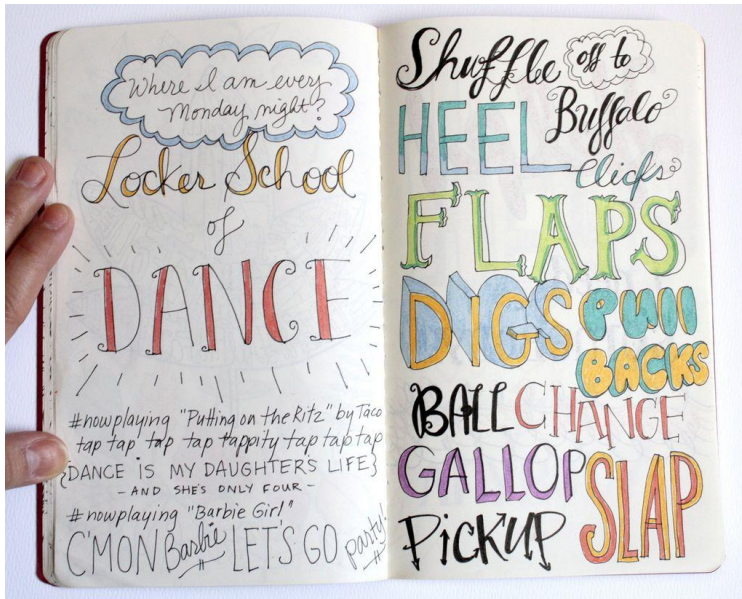 Where I am every
Monday night?
Locker School
of
DANCE
#nowplaying "Putting on the Ritz" by Taco
tap tap tap tap tappity tap tap tap
{DANCE IS MY DAUGHTER'S LIFE}
- AND SHE'S ONLY FOUR -
#nowplaying "Barbie Girl"
C'MON Barbie LET'S GO party!
Shuffle off to
Buffalo
HEEL
Clicks
FLAPS
DIGS PULL
BACKS
BALL CHANGE
GALLOP SLAP
PICKUP